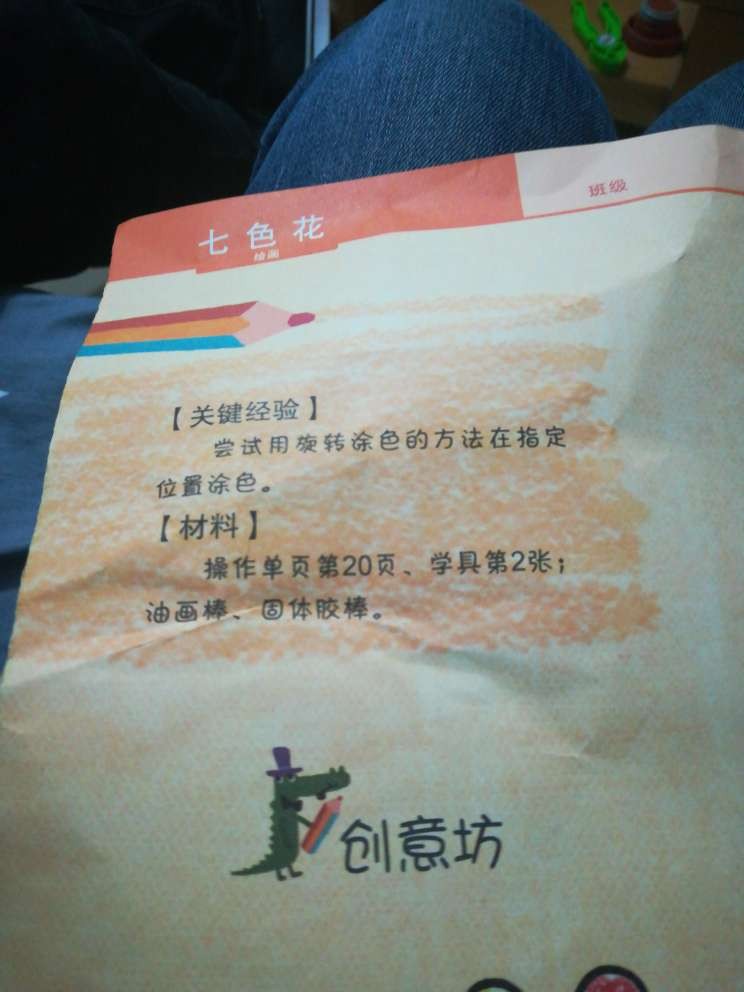 七色花
绘画
班级
【关键经验】
尝试用旋转涂色的方法在指定
位置涂色。
【材料】
操作单页第20页、学具第2张；
油画棒、固体胶棒。
创意坊